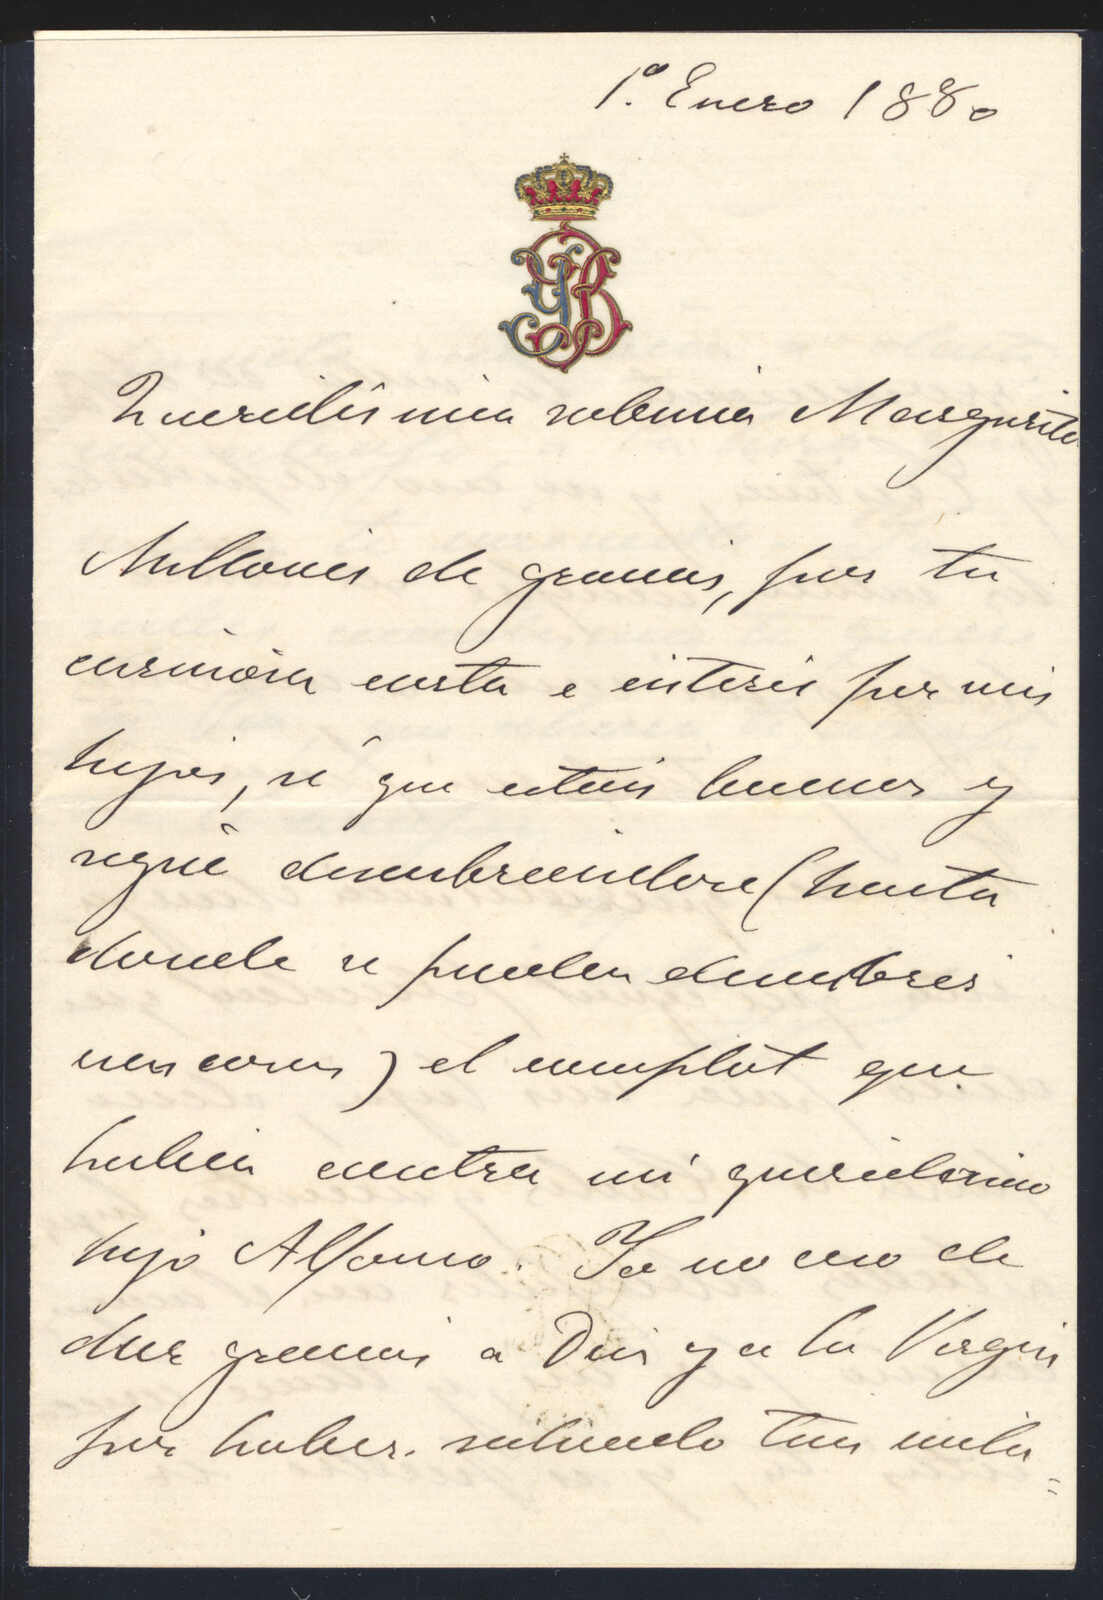 1º Enero 1880
Queridísima sobrina Margarita
Millones de gracias, por tu
cariñosa carta e interés por mis
hijos, sé que estais buenos y
sigue descubriendose (hasta
donde se pueden descubrir
esas cosas) el complot que
habia contra mi queridisimo
hijo Alfonso. Yo no ceso de
dar gracias a Dios y a la Virgen
por haber salvado tan mila=